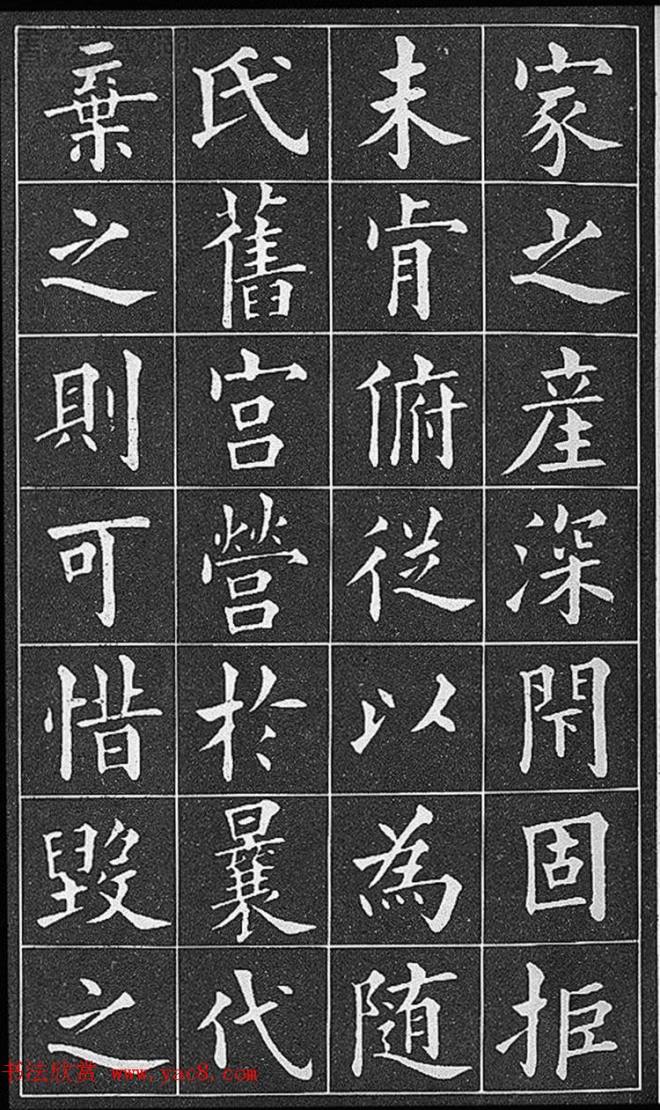 家之産深閇固拒
未肯俯從以為隨
氏舊宫營於曩代
棄之則可惜毀之
书法欣赏 www.yac8.com